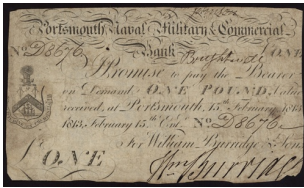 Portsmouth Naval Military & Commercial
Bank
No. D8676 ONE
I Promise to pay the Bearer
on Demand ONE POUND, Value
received, at Portsmouth, 15th February
February 15th Entd. No. D8676
For William Burridge & Sons
ONE
Wm Burridge